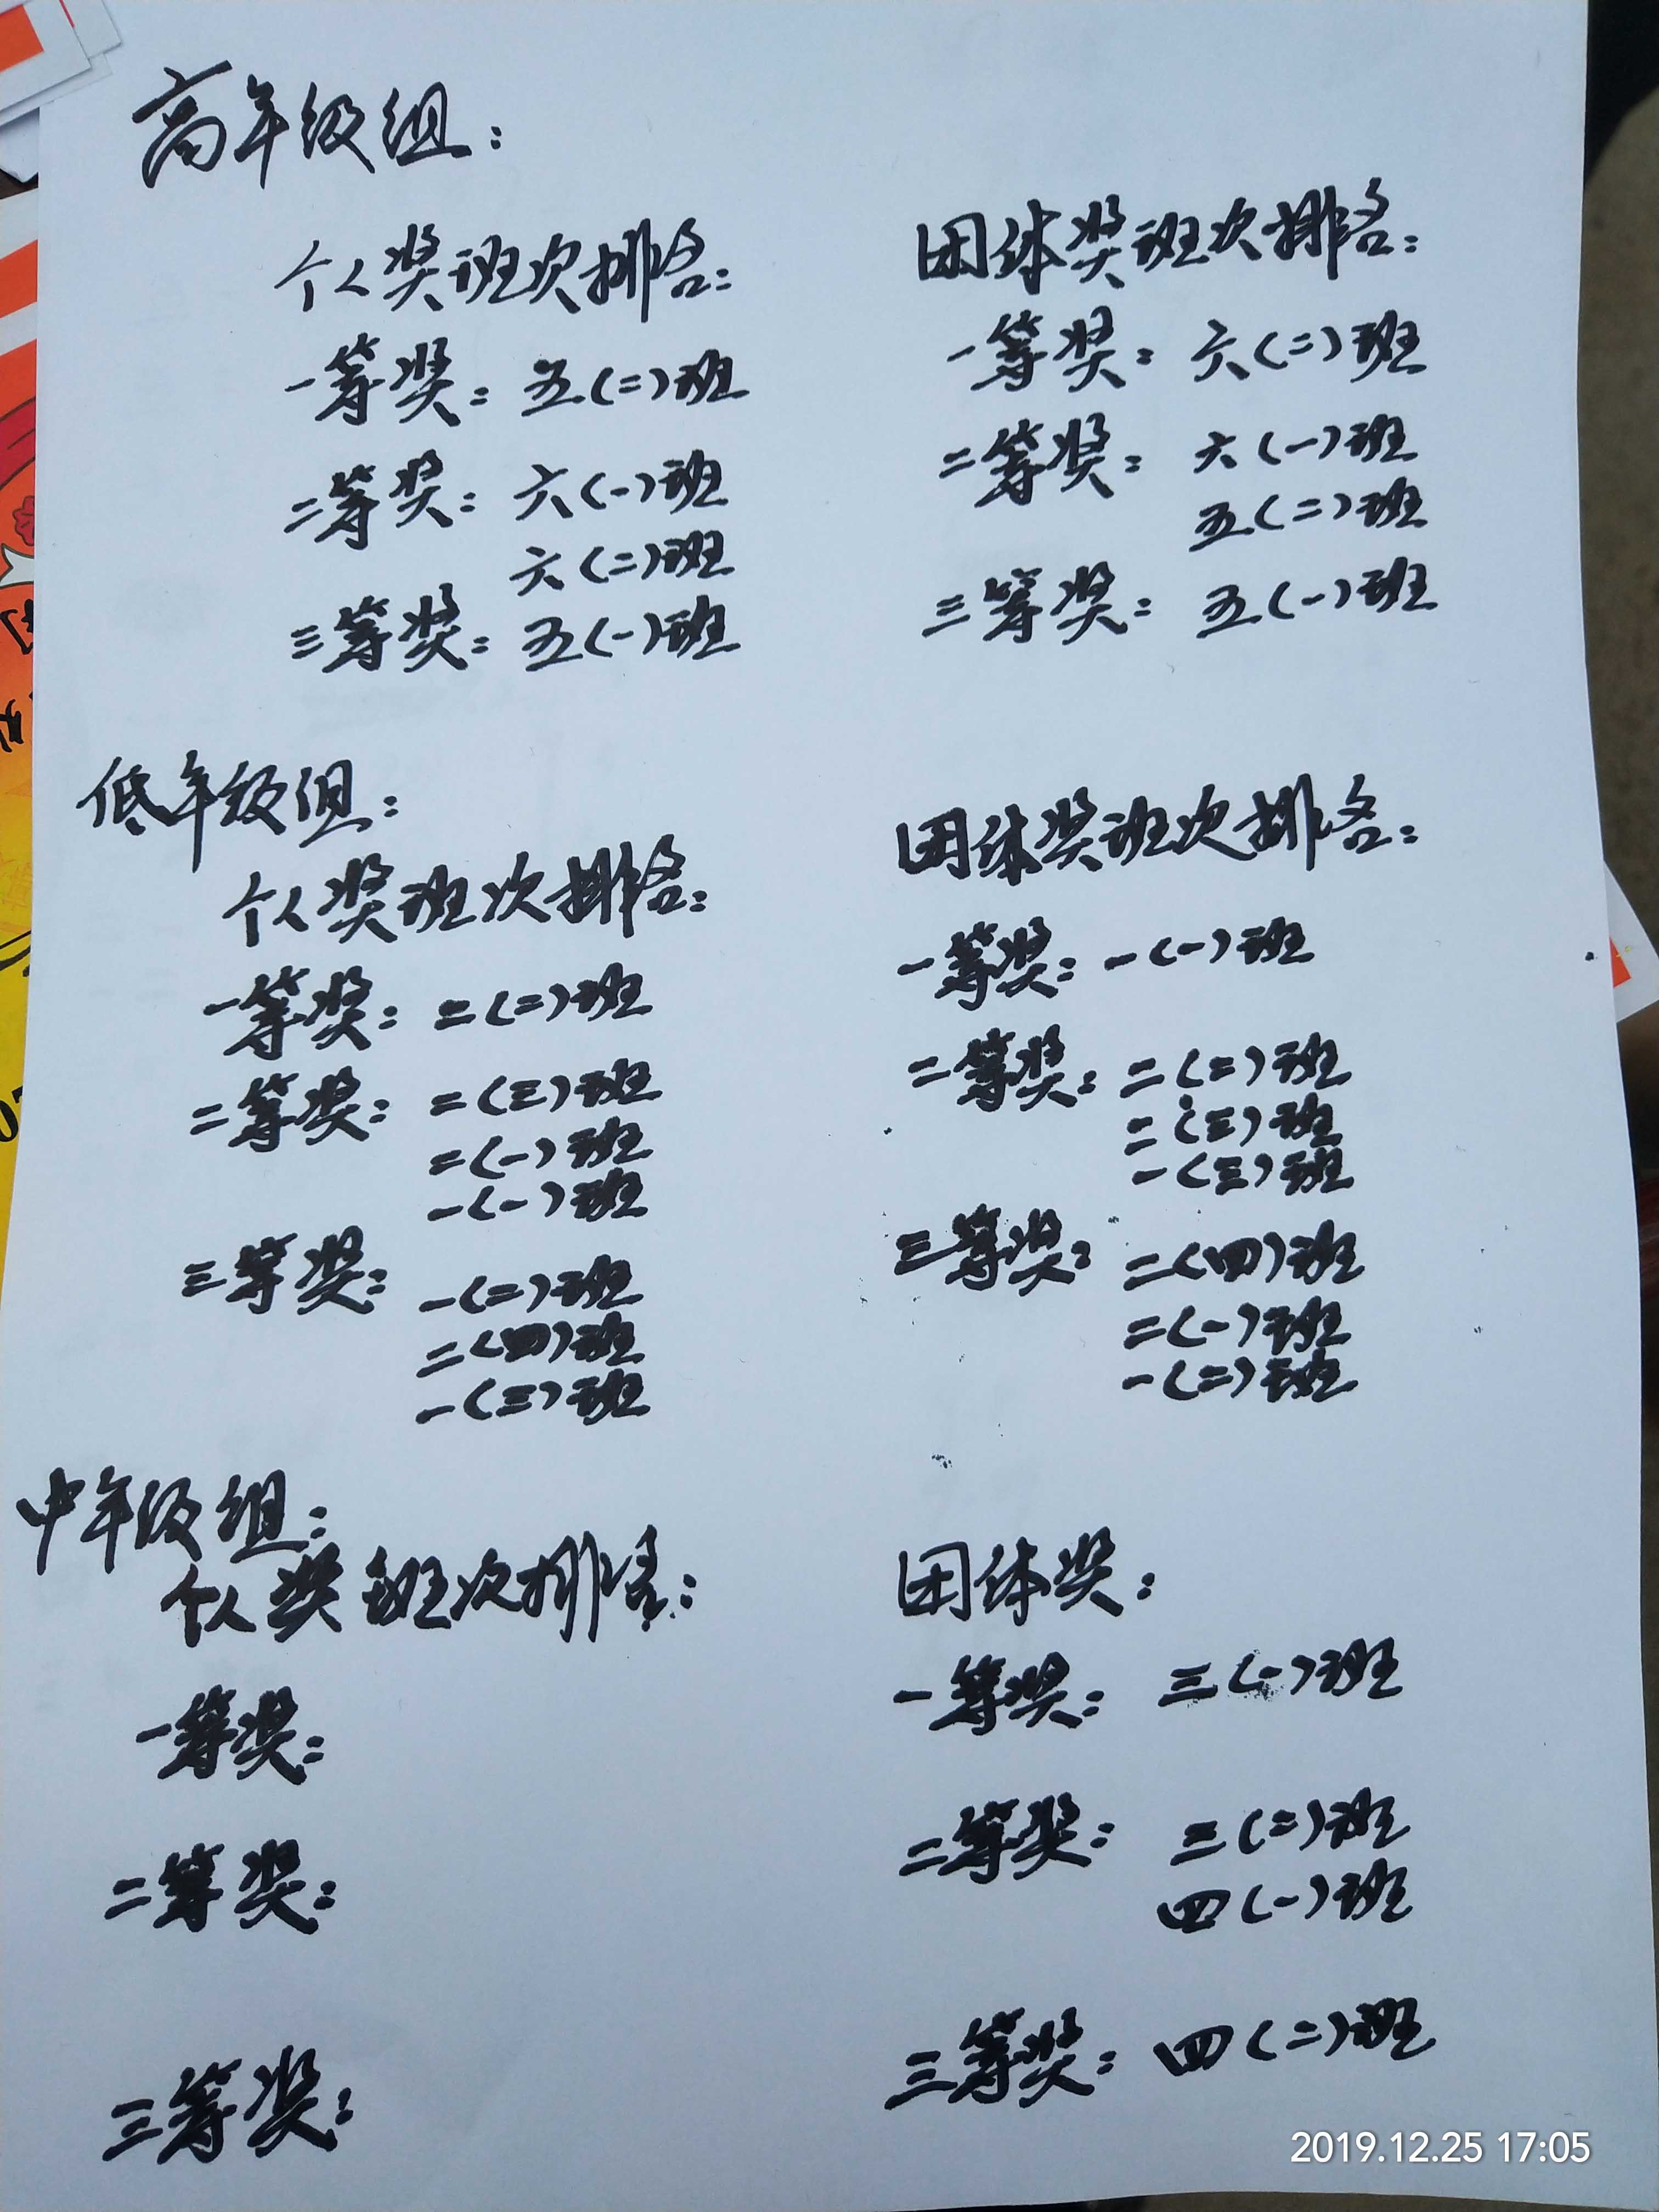 高年级组：
个人奖班次排名：
一等奖：五（二）班
二等奖：六（一）班
六（二）班
三等奖：五（一）班
团体奖班次排名：
一等奖：六（二）班
二等奖：六（一）班
五（二）班
三等奖：五（一）班
低年级组：
个人奖班次排名：
一等奖：二（二）班
二等奖：二（三）班
二（一）班
一（一）班
三等奖：一（二）班
二（四）班
一（三）班
团体奖班次排名：
一等奖：一（一）班
二等奖：二（二）班
二（三）班
一（三）班
三等奖：二（四）班
二（一）班
一（二）班
中年级组：
个人奖班次排名：
一等奖：
二等奖：
三等奖：
团体奖：
一等奖：三（一）班
二等奖：三（二）班
四（一）班
三等奖：四（二）班
2019.12.25 17:05